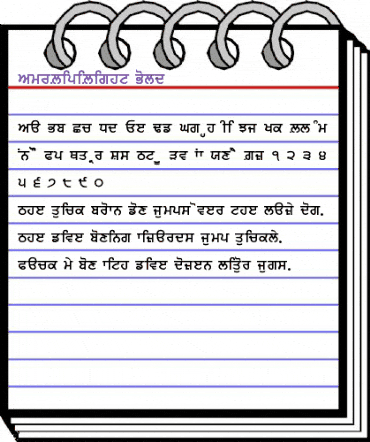 ਅਮਰਲਿਪਿਲਿਗਿਹਟ ਭੋਲਦ
ਅੳ ਭਬ ਛਚ ਧਦ ਓੲ ਢਡ ਘਗ ੍ਹਹ ੀਿ ਝਜ ਖਕ ਲ਼ਲ ੰਮ
ਂਨ ੌੋ ਫਪ ਥਤ ੍ਰਰ ਸ਼ਸ ਠਟ ੂੁ ੜਵ ਾਂ ਯਣ ੈੇ ਗ਼ਜ਼ ੧ ੨ ੩ ੪
੫ ੬ ੭ ੮ ੯ ੦
ਠਹੲ ਤੁਚਿਕ ਬਰੋਾਨ ਫੋਣ ਜੁਮਪਸ ੋਵੲਰ ਟਹੲ ਲੳਜ਼ੇ ਦੋਗ.
ਠਹੲ ਡਵਿੲ ਬੋਣਨਿਗ ਾਜ਼ਿੳਰਦਸ ਜੁਮਪ ਤੁਚਿਕਲੇ.
ਫੳਚਕ ਮੇ ਬੋਣ ਾਟਿਹ ਡਵਿੲ ਦੋਜ਼ੲਨ ਲਤੁਿੋਰ ਜੁਗਸ.